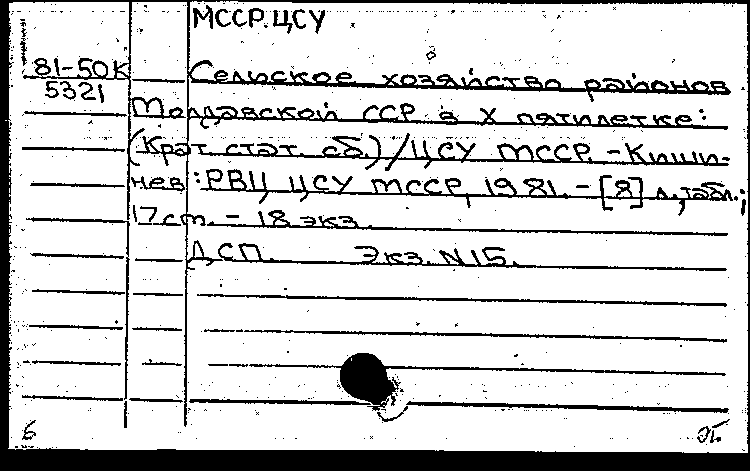 МССР. ЦСУ
81-50К
5321
Сельское хозяйство районов
Молдавской ССР в X пятилетке:
(Крат. стат. сб.) / ЦСУ МССР. - Киши-
нев: РВЦ ЦСУ МССР, 1981. - [8] л., табл.;
17 см. - 18 экз.
ДСП. Экз. N15.
б